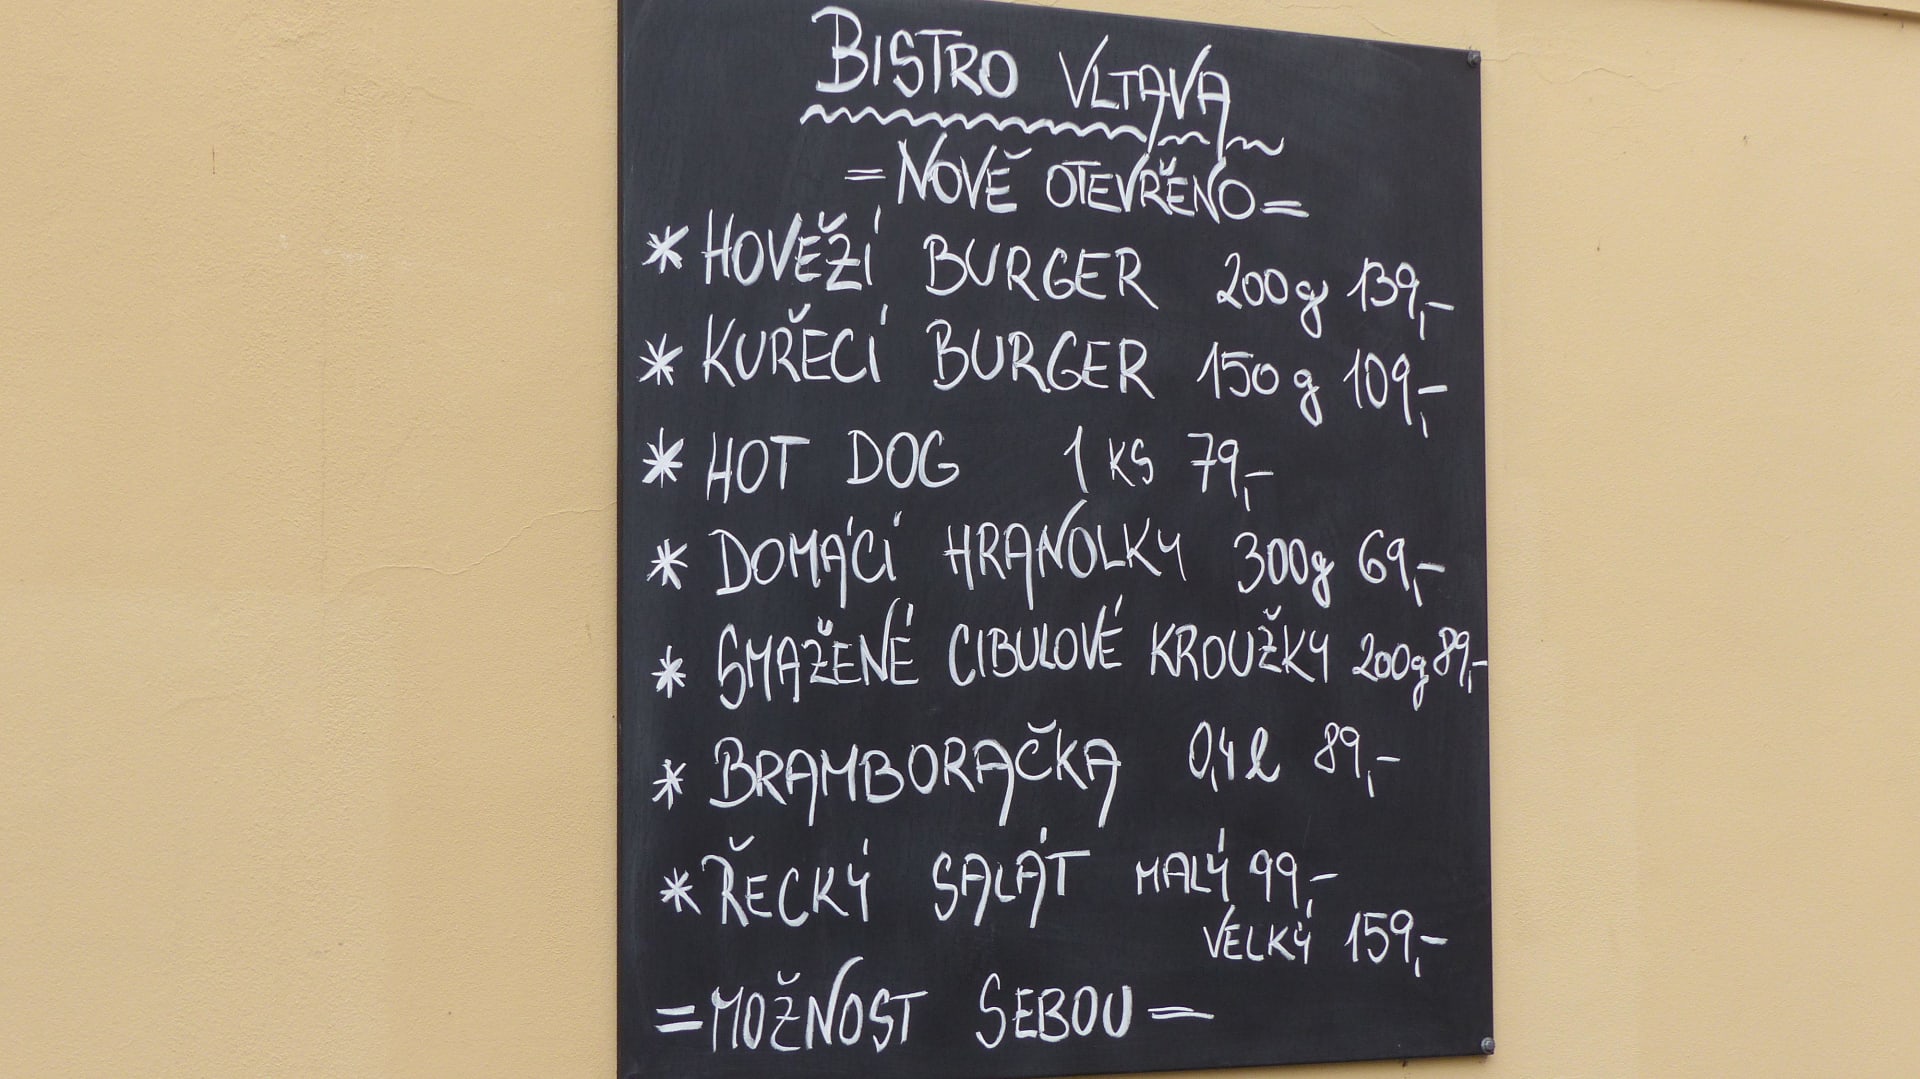 BISTRO VLTAVA
= NOVĚ OTEVŘENO =
* HOVĚZÍ BURGER 200g 139,-
* KUŘECÍ BURGER 150g 109,-
* HOT DOG 1 KS 79,-
* DOMÁCÍ HRANOLKY 300g 69,-
* SMAŽENÉ CIBULOVÉ KROUŽKY 200g 89,-
* BRAMBORAČKA 0,4l 89,-
* ŘECKÝ SALÁT MALÝ 99,-
VELKÝ 159,-
= MOŽNOST SEBOU =